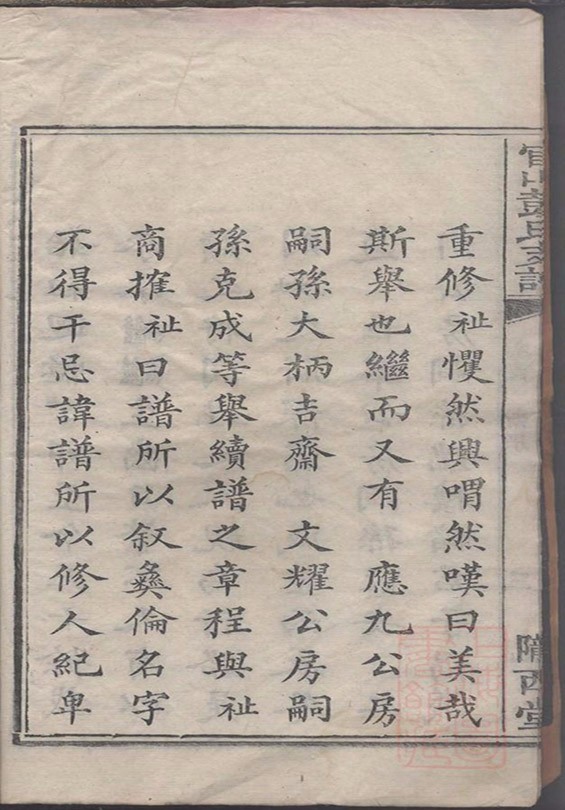 重修 祉懼然興喟然嘆曰美哉
斯舉也繼而又有 應九公房
嗣孫大柄吉齋 文耀公房嗣
孫克成等舉續譜之章程與 祉
商搉 祉曰譜所以叙彜倫名字
不得干忌諱譜所以修人紀卑
彭氏支譜
隴西堂